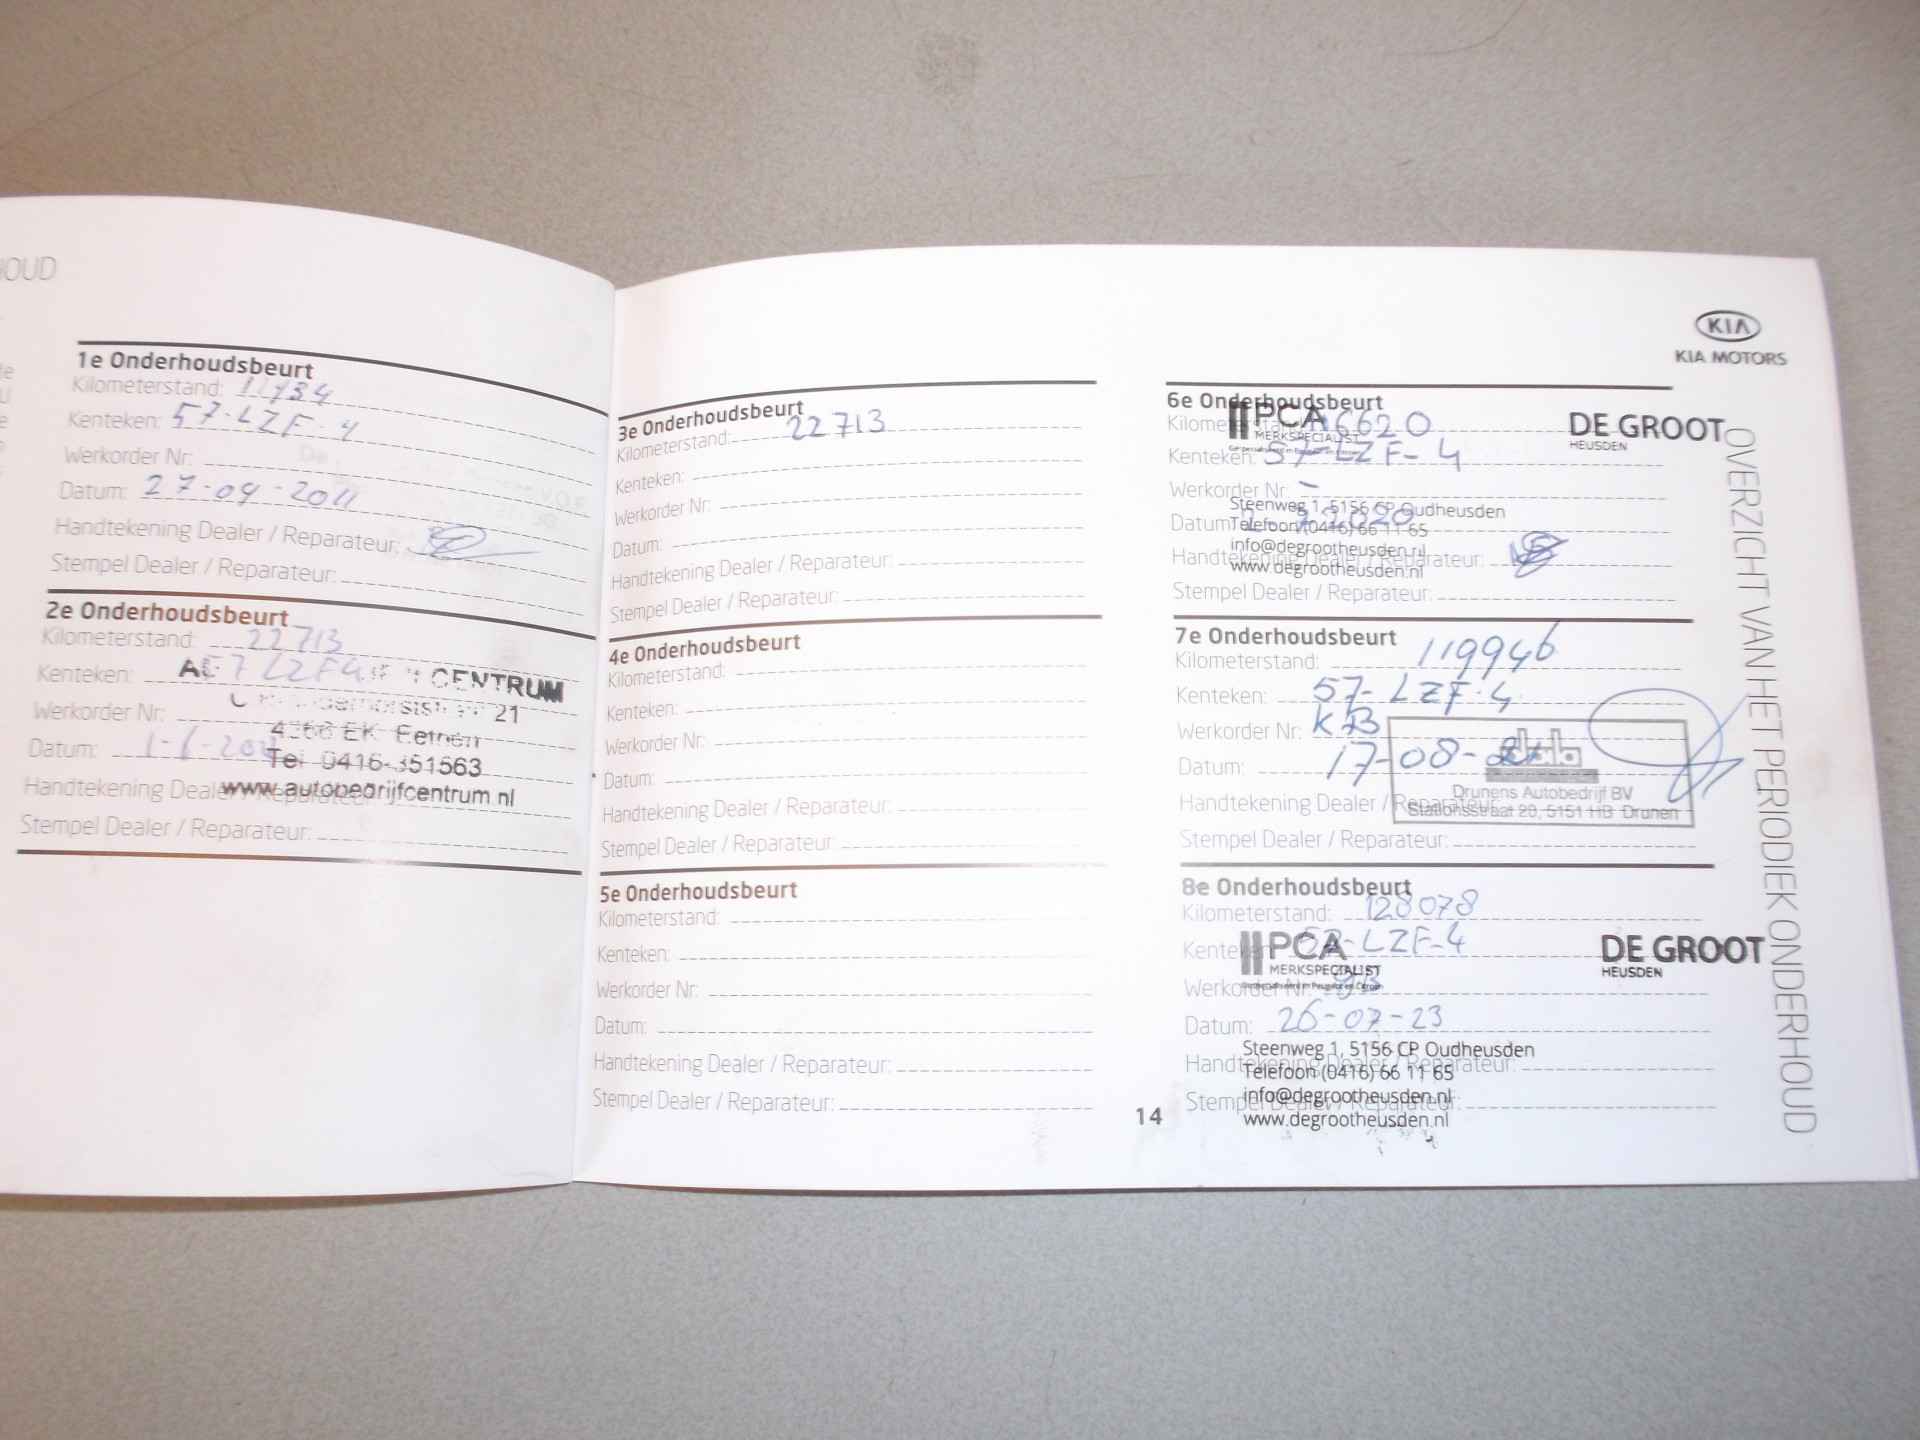 HOUD
1e Onderhoudsbeurt
Kilometerstand: 11434
Kenteken: 57-LZF-4
Werkorder Nr:
Datum: 27-04-2011
Handtekening Dealer / Reparateur:
Stempel Dealer / Reparateur:
2e Onderhoudsbeurt
Kilometerstand: 22713
Kenteken: 7 LZF4
CENTRUM
Werkorder Nr:
21
4266 EK Eethen
Datum: 1-1-
Tel 0416-351563
Handtekening Dealer / Reparateur:
www.autobedrijfcentrum.nl
Stempel Dealer / Reparateur:
3e Onderhoudsbeurt
Kilometerstand: 22713
Kenteken:
Werkorder Nr:
Datum:
Handtekening Dealer / Reparateur:
Stempel Dealer / Reparateur:
4e Onderhoudsbeurt
Kilometerstand:
Kenteken:
Werkorder Nr:
Datum:
Handtekening Dealer / Reparateur:
Stempel Dealer / Reparateur:
5e Onderhoudsbeurt
Kilometerstand:
Kenteken:
Werkorder Nr:
Datum:
Handtekening Dealer / Reparateur:
Stempel Dealer / Reparateur:
14
KIA
KIA MOTORS
OVERZICHT VAN HET PERIODIEK ONDERHOUD
6e Onderhoudsbeurt
PCA
MERKSPECIALIST
DE GROOT
HEUSDEN
Kilometerstand:
Kenteken: 57-LZF-4
Werkorder Nr: -
Steenweg 1, 5156 CP Oudheusden
Datum:
Telefoon (0416) 66 11 65
info@degrootheusden.nl
Handtekening Dealer / Reparateur:
www.degrootheusden.nl
Stempel Dealer / Reparateur:
7e Onderhoudsbeurt
Kilometerstand: 119946
Kenteken: 57-LZF-4
Werkorder Nr: KB
Datum: 17-08-21
dab
Drunens Autobedrijf BV
Handtekening Dealer / Reparateur:
Stationsstraat 20, 5151 HB Drunen
Stempel Dealer / Reparateur:
8e Onderhoudsbeurt
Kilometerstand: 128078
Kenteken: 57-LZF-4
PCA
MERKSPECIALIST
DE GROOT
HEUSDEN
Werkorder Nr:
Datum: 26-07-23
Steenweg 1, 5156 CP Oudheusden
Handtekening Dealer / Reparateur:
Telefoon (0416) 66 11 65
info@degrootheusden.nl
Stempel Dealer / Reparateur:
www.degrootheusden.nl